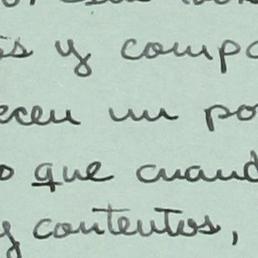 y comp
ecen un po
o que cuand
y contentos,